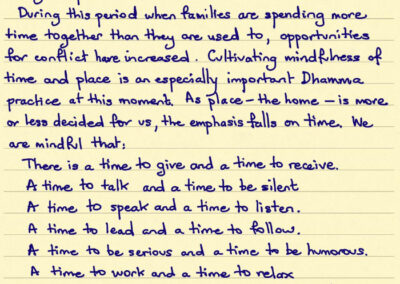 During this period when families are spending more
time together than they are used to, opportunities
for conflict have increased. Cultivating mindfulness of
time and place is an especially important Dhamma
practice at this moment. As place - the home - is more
or less decided for us, the emphasis falls on time. We
are mindful that:
There is a time to give and a time to receive.
A time to talk and a time to be silent
A time to speak and a time to listen.
A time to lead and a time to follow.
A time to be serious and a time to be humorous.
A time to work and a time to relax